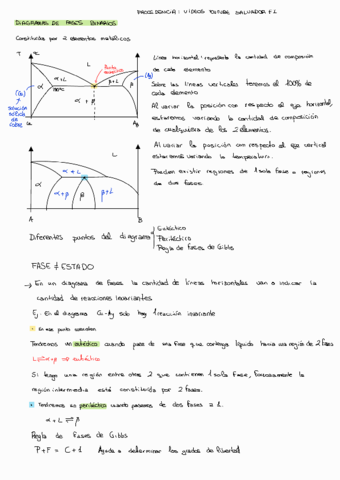 PROCEDENCIA: VÍDEOS YOUTUBE SALVADOR F.L
DIAGRAMAS DE FASES BINARIOS
Constituidos por 2 elementos metálicos
T
ºC
ºC
L
Punto
α+L
(β)
Línea horizontal: representa la cantidad de composición
de cada elemento
Sobre las líneas verticales tenemos el 100% de
cada elemento
(α)
α
β
780ºC
α + β
solución
sólida de
cobre
Cu
Ag
Al variar la posición con respecto al eje horizontal,
estaremos variando la cantidad de composición
de cualquiera de los 2 elementos.
Al variar la posición con respecto al eje vertical
estaremos variando la temperatura.
Pueden existir regiones de 1 sola fase o regiones
de dos fases.
L
α + L
α
β
β+L
α + β
A
B
Diferentes puntos del diagrama
Eutéctico
Peritéctico
Regla de Fases de Gibbs
FASE ≠ ESTADO
→ En un diagrama de fases la cantidad de líneas horizontales van a indicar la
cantidad de reacciones invariantes
Ej: En el diagrama Cu-Ag solo hay 1 reacción invariante
En ese punto coexisten
Tendremos un eutéctico cuando pase de una fase que contenga líquido hacia una región de 2 fases
Si tengo una región entre otras 2 que contienen 1 sola fase, forzosamente la
región intermedia está constituida por 2 fases.
Tendremos un peritéctico cuando pasemos de dos fases a 1.
α + L ⇌ β
Regla de Fases de Gibbs
P+F = C+1 Ayuda a determinar los grados de libertad